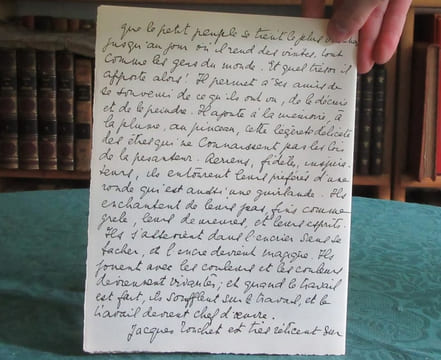 que le petit peuple se tient le plus
jusqu'au jour où il rend des visites, tout
comme les gens du monde. Et quel trésor il
apporte alors! Il permet à ses amis de
se souvenir de ce qu'ils ont vu, de le décrire
et de le peindre. Il ajoute à la mémoire, à
la plume, au pinceau, cette légèreté délicate
des êtres qui ne connaissent pas les lois
de la pesanteur. Aeriens, fidèles, inspira-
teurs, ils entourent leurs préférés d'une
ronde qui est aussi une guirlande. Ils
enchantent de leurs pas, fins comme
grêle, leurs demeures, et leurs esprits.
Ils s'abreuvent dans l'encrier sans se
tacher, et l'encre devient magique. Ils
jouent avec les couleurs et les couleurs
deviennent vivantes; et quand le travail
est fait, ils soufflent sur le travail, et le
travail devient chef d'œuvre.
Jacques et très réticent sur